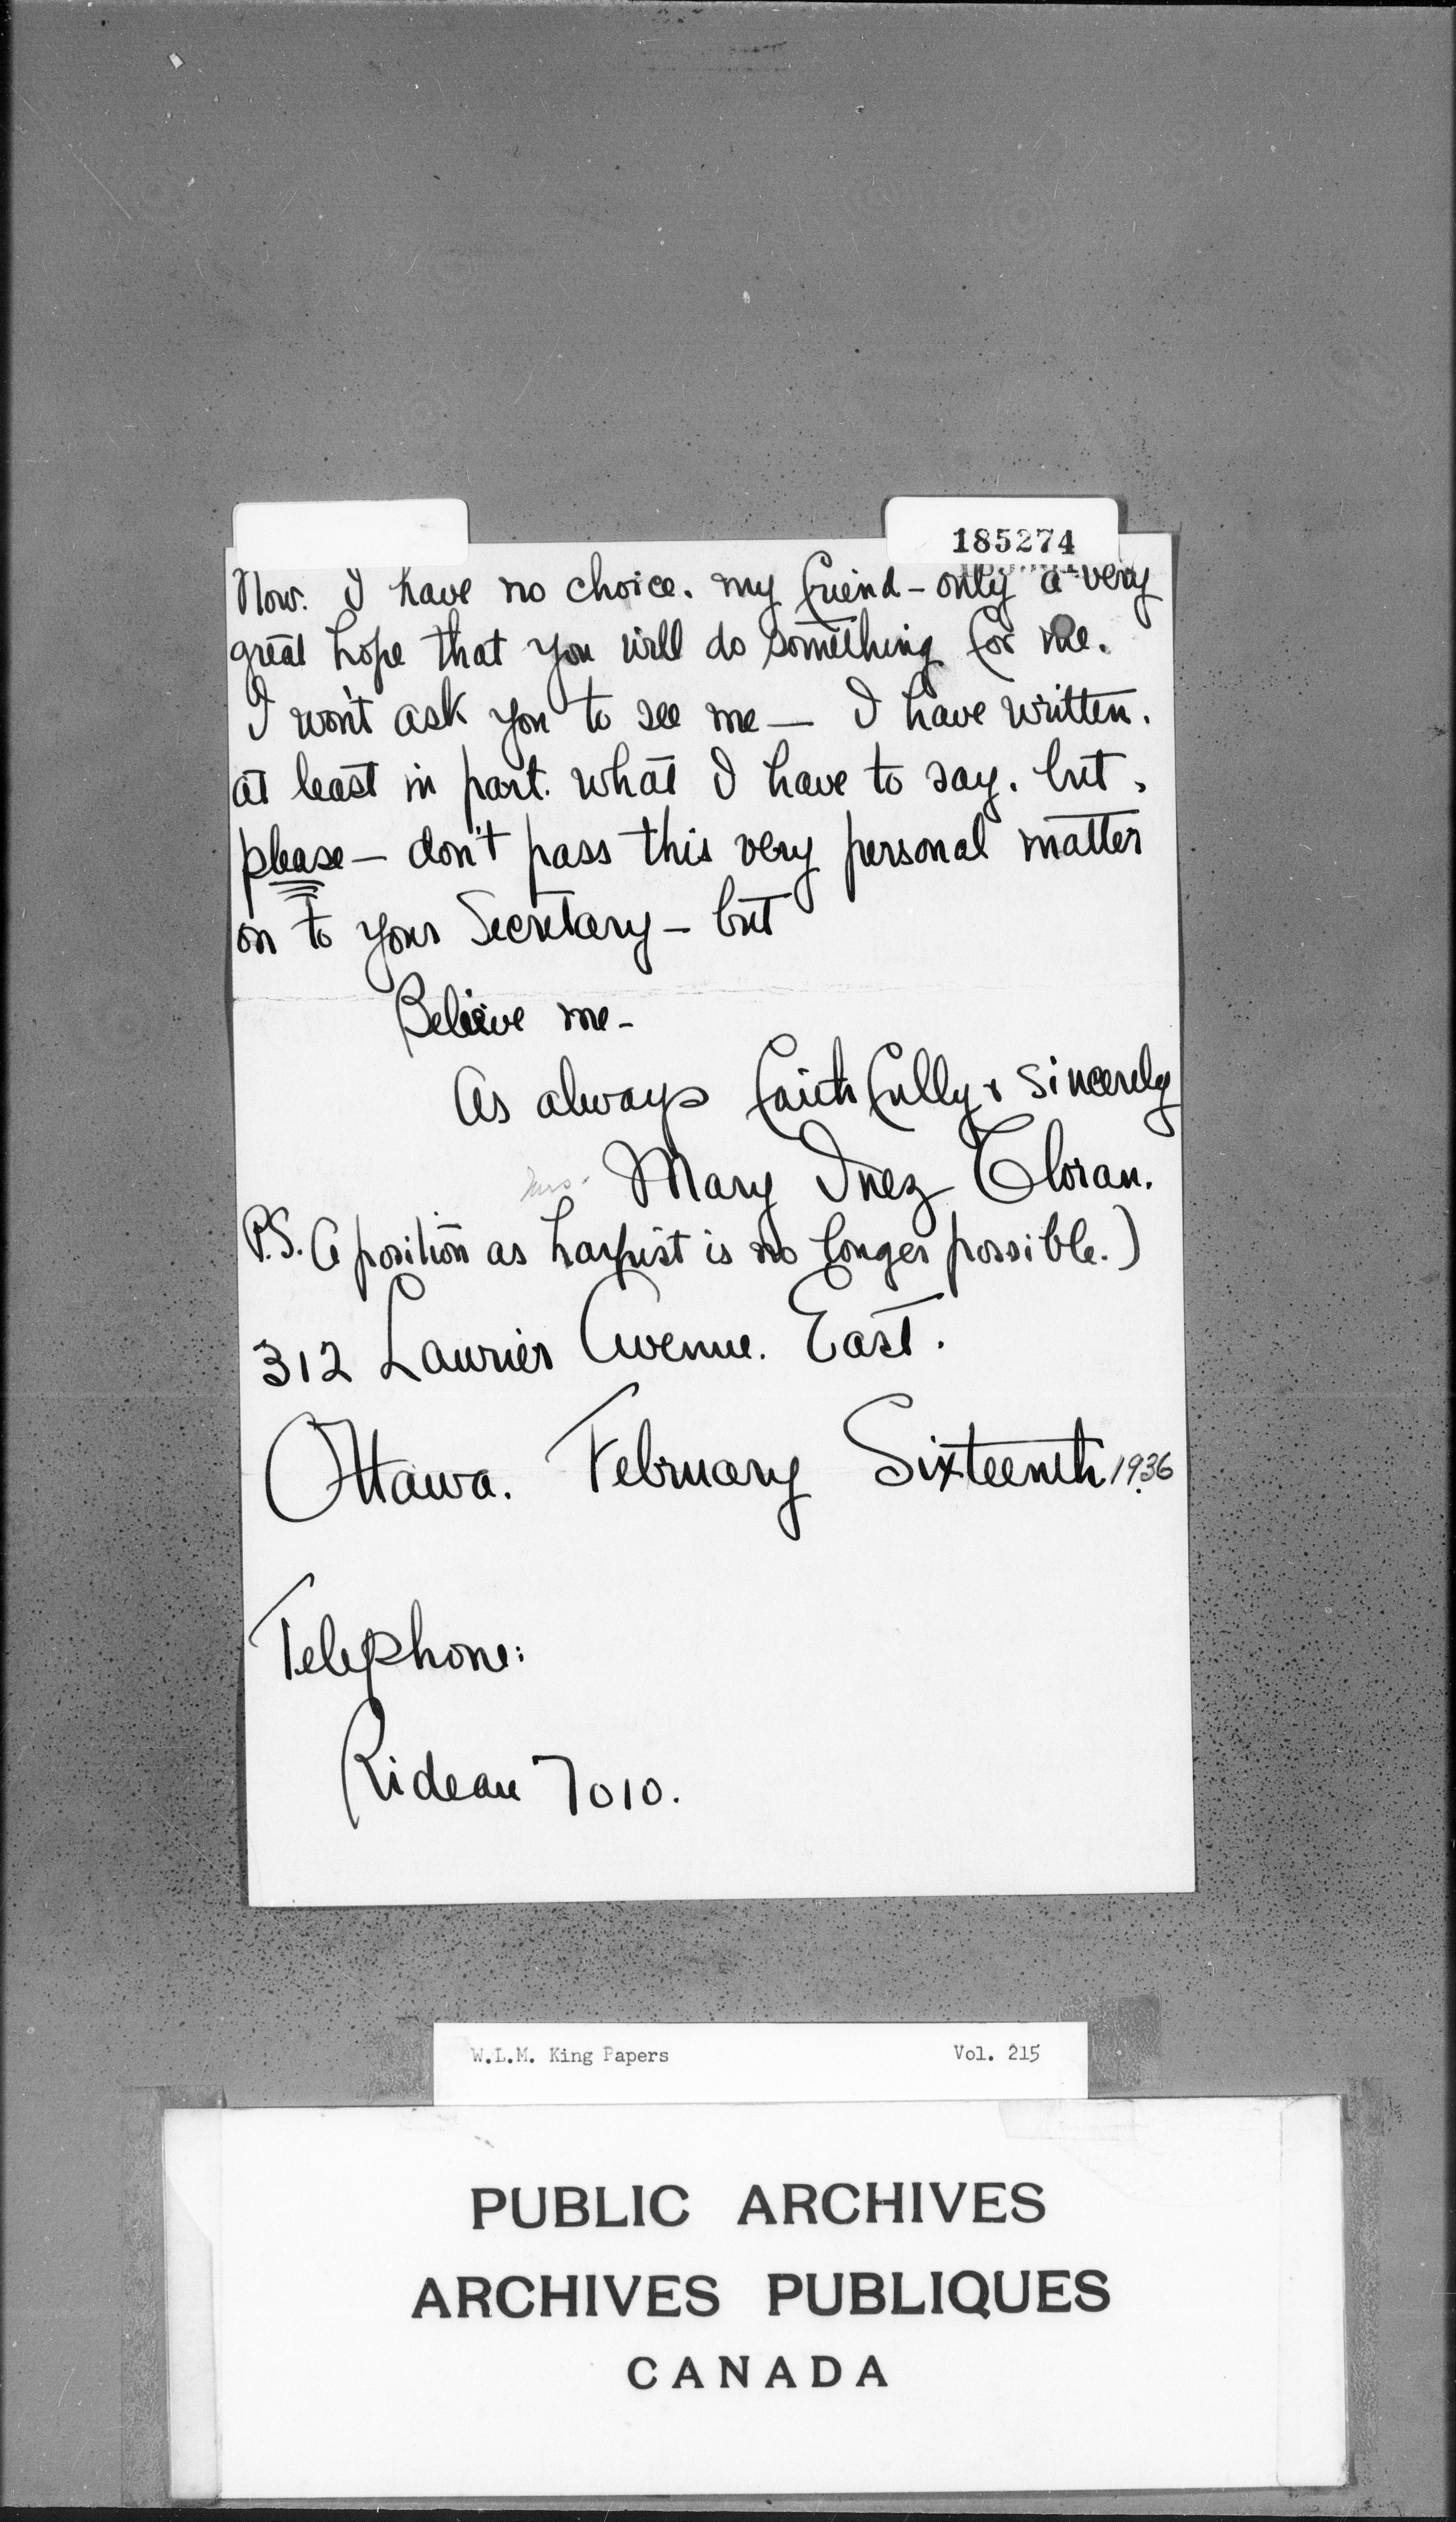 185274
Now. I have no choice. my friend - only a very
great hope that you will do something for me.
I won't ask you to see me — I have written.
at least in part. what I have to say. but,
please — don't pass this very personal matter
on to your Secretary — but
Believe me -
As always faithfully & sincerely
Mrs. Mary Inez Cloran.
P.S. (A position as harpist is no longer possible.)
312 Laurier Avenue. East.
Ottawa. February Sixteenth 1936
Telephone:
Rideau 7010.
W.L.M. King Papers Vol. 215
PUBLIC ARCHIVES
ARCHIVES PUBLIQUES
CANADA